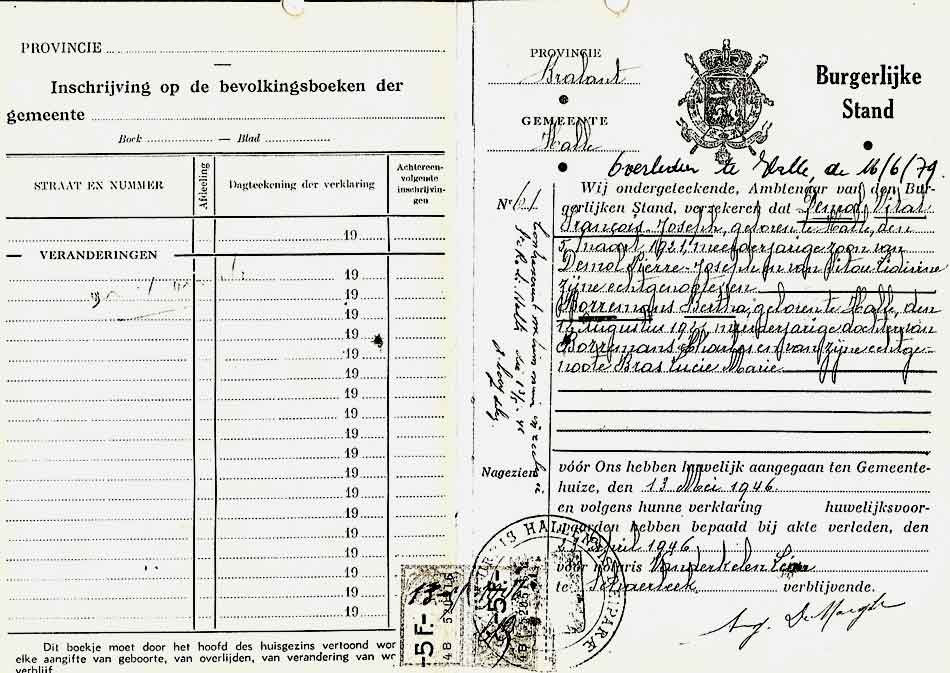 PROVINCIE
Inschrijving op de bevolkingsboeken der
gemeente
Boek — Blad
STRAAT EN NUMMER
Afdeeling
Dagteekening der verklaring
Achtereen-
volgende
inschrijvin-
gen
19
VERANDERINGEN
19
19
19
19
19
19
19
19
19
19
19
19
19
19
19
19
19
19
Dit boekje moet door het hoofd des huisgezins vertoond wor
elke aangifte van geboorte, van overlijden, van verandering van wo
verblijf
PROVINCIE
Brabant
GEMEENTE
Halle
Burgerlijke
Stand
Overleden te Halle, de 16/6/79.
Nr 61
Wij ondergeteekende, Ambtenaar van den Bur-
gerlijken Stand, verzekeren dat Demol Vital
François-Joseph, geboren te Halle, den
5 maart 1921, meerderjarige zoon van
Demol Pierre-Joseph en van
zijne echtgenoote en
Borremans Bertha, geboren te Halle, den
Augustus meerderjarige dochter van
Borremans Charles en van zijne echtge-
noote Bras Lucie Marie.
Nagezien
vóór Ons hebben huwelijk aangegaan ten Gemeente-
huize, den 13 Mei 1946
en volgens hunne verklaring huwelijksvoor-
waarden hebben bepaald bij akte verleden, den
April 1946
vóór notaris Vanderkelen
te Schaerbeek verblijvende.
-5F-
-5F-